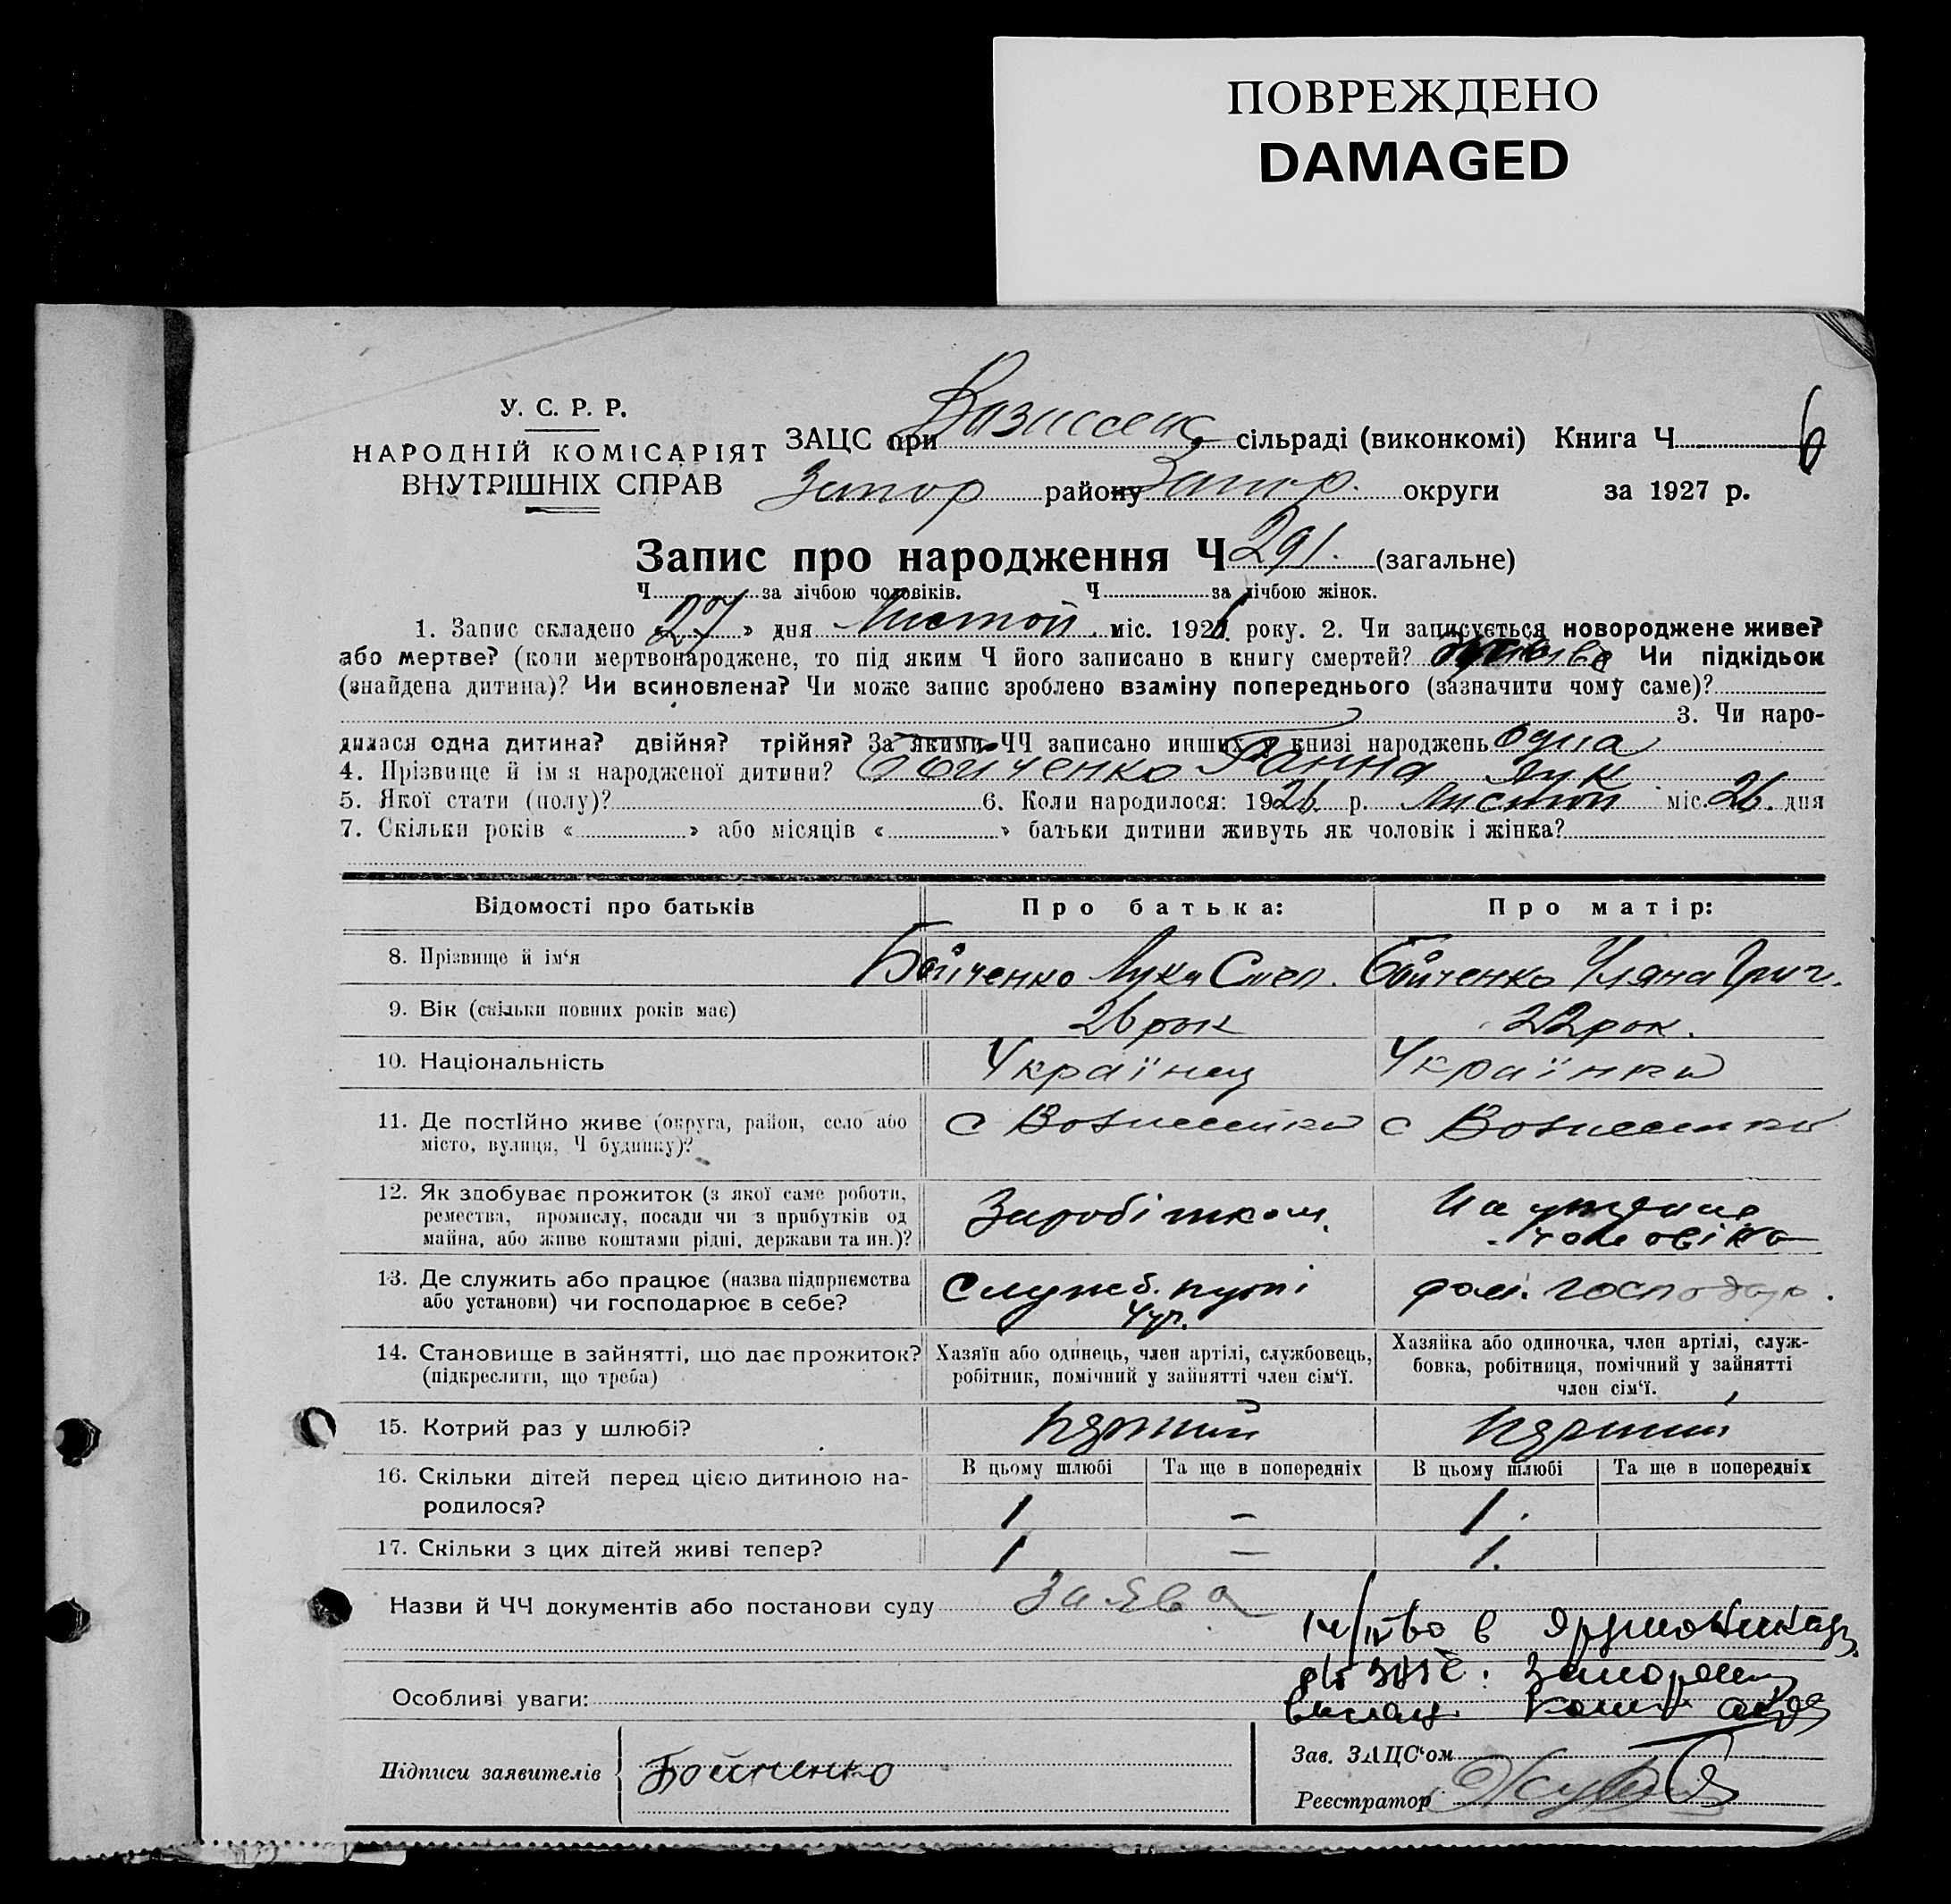 ПОВРЕЖДЕНО
DAMAGED
У. С. Р. Р.
НАРОДНІЙ КОМІСАРІЯТ
ВНУТРІШНІХ СПРАВ
ЗАЦС при Вазнесенс. сільраді (виконкомі) Книга Ч 6
Запор району Запор. округи за 1927 р.
Запис про народження Ч 291. (загальне)
Ч за лічбою чоловіків. Ч за лічбою жінок.
1. Запис складено « 27 » дня Листоп. міс. 1926 року. 2. Чи записується новороджене живе?
або мертве? (коли мертвонароджене, то під яким Ч його записано в книгу смертей? Чи підкідьок
(знайдена дитина)? Чи всиновлена? Чи може запис зроблено взаміну попереднього (зазначити чому саме)?
3. Чи наро-
дилася одна дитина? двійня? трійня? За якими ЧЧ записано инших у книзі народжень одна
4. Прізвище й ім'я народженої дитини? Бойченко Ганна Лук
5. Якої стати (полу)? 6. Коли народилося: 1926 р. Листоп міс. 26. дня
7. Скільки років « » або місяців « » батьки дитини живуть як чоловік і жінка?
Відомості про батьків Про батька: Про матір:
8. Прізвище й ім'я Бойченко Лука Степ. Бойченко Уляна Григ.
9. Вік (скільки повних років має) 26 рок 22 рок.
10. Національність Українец Українка
11. Де постійно живе (округа, район, село або
місто, вулиця, Ч будинку)? с Вознесенка с Вознесенка
12. Як здобуває прожиток (з якої саме роботи,
ремества, промислу, посади чи з прибутків од
майна, або живе коштами рідні, держави та ин.)? Заробітком. На утрим чоловіка
13. Де служить або працює (назва підприємства
або установи) чи господарює в себе? Служб. путі дом. господар.
14. Становище в зайнятті, що дає прожиток?
(підкреслити, що треба)
Хазяїн або одинець, член артілі, службовець,
робітник, помічний у зайнятті член сім'ї.
Хазяйка або одиночка, член артілі, служ-
бовка, робітниця, помічний у зайнятті
член сім'ї.
15. Котрий раз у шлюбі? Перший Перший
16. Скільки дітей перед цією дитиною на-
родилося?
В цьому шлюбі Та ще в попередніх В цьому шлюбі Та ще в попередніх
1 – 1.
17. Скільки з цих дітей живі тепер? 1 — 1.
Назви й ЧЧ документів або постанови суду Заява
Особливі уваги:
Підписи заявителів Бойченко
Зав. ЗАЦС'ом
Реєстратор